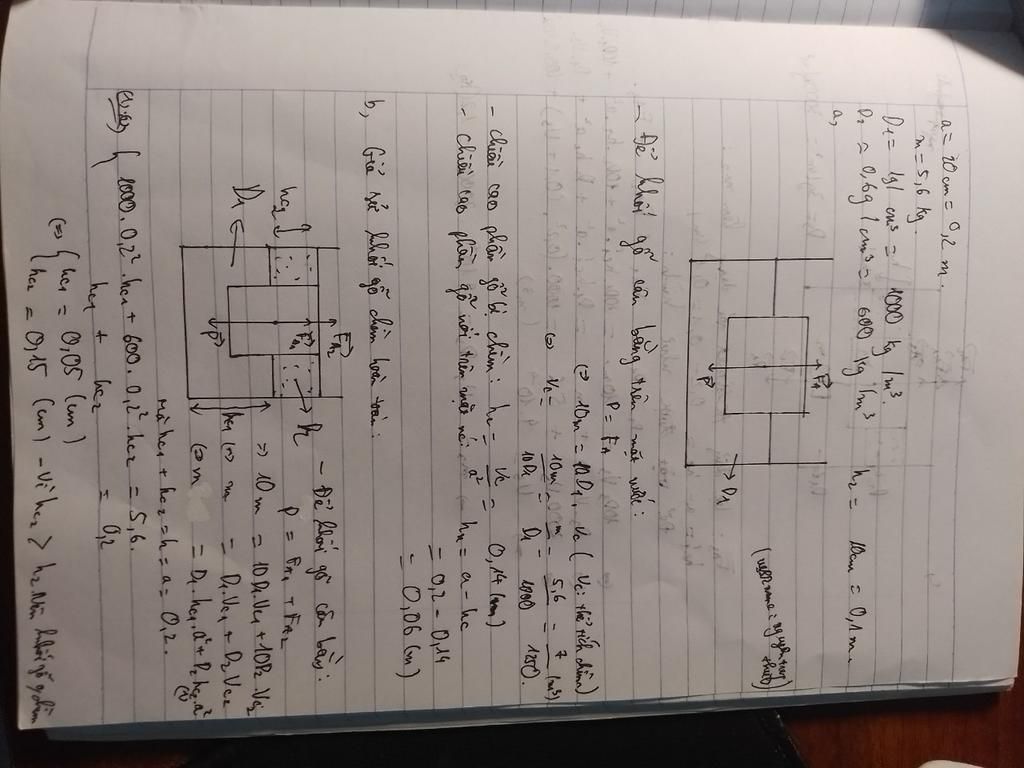 a = 20 cm = 0,2 m.
m = 5,6 kg.
D₁ = 1g/cm³ = 1000 kg/m³.
D₂ = 0,6g/cm³ = 600 kg/m³
h₂ = 10cm = 0,1m.
a,
F_A
P
D₁
- Để khối gỗ cân bằng trên mặt nước:
P = F_A
⇔ 10m = 10D₁. Vc (Vc: thể tích chìm)
⇔ Vc = 10m / 10D₁ = m / D₁ = 5,6 / 1000 = 7 / 1250 (m³)
- chiều cao phần gỗ bị chìm: hc = Vc / a² = 0,14 (m)
- chiều cao phần gỗ nổi trên mặt nước: hn = a - hc
= 0,2 - 0,14
= 0,06 (m)
b, Giả sử khối gỗ chìm hoàn toàn:
F_A₂
F_A₁
P
hc₂
hc₁
D₁
D₂
- Để khối gỗ cân bằng:
P = F_A₁ + F_A₂
⇒ 10m = 10D₁.Vc₁ + 10D₂.Vc₂
⇔ m = D₁.Vc₁ + D₂.Vc₂
⇔ m = D₁.hc₁.a² + D₂.hc₂.a² (1)
Mà hc₁ + hc₂ = h = a = 0,2.
{ 1000. 0,2². hc₁ + 600. 0,2². hc₂ = 5,6.
hc₁ + hc₂ = 0,2
⇔ { hc₁ = 0,05 (cm)
hc₂ = 0,15 (cm) - Vì hc₂ > h₂ Nên khối gỗ